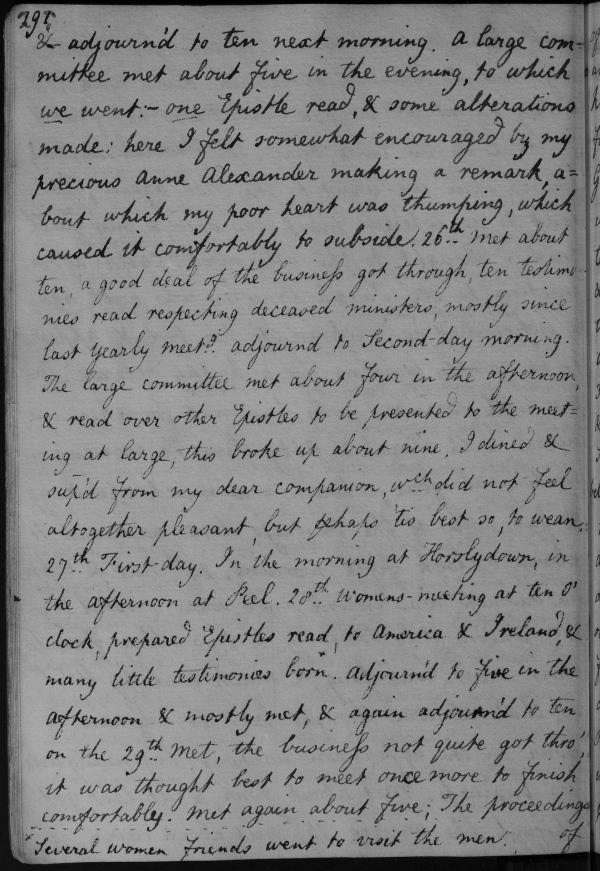 291
& adjourn'd to ten next morning. A large com-
mittee met about five in the evening, to which
we went:- one Epistle read, & some alterations
made: here I felt somewhat encouraged by my
precious Anne Alexander making a remark, a=
bout which my poor heart was thumping, which
caused it comfortably to subside. 26th. Met about
ten, a good deal of the business got through, ten testimo
nies read respecting deceased ministers, mostly since
last Yearly Meetg. adjournd to Second-day morning.
The large committee met about four in the afternoon,
& read over other Epistles to be presented to the meet=
ing at large, this broke up about nine. I dined &
sup'd from my dear companion, wch did not feel
altogether pleasant, but phaps 'tis best so, to wean.
27th. First-day. In the morning at Horslydown, in
the afternoon at Peel. 28th. Womens-meeting at ten O'
clock, prepared Epistles read, to America & Ireland, &
many little testimonies born. Adjourn'd to five in the
afternoon & mostly met, & again adjourn'd to ten
on the 29th. Met, the business not quite got thro',
it was thought best to meet once more to finish
comfortably. Met again about five; The proceedings
Several women friends went to visit the men. of